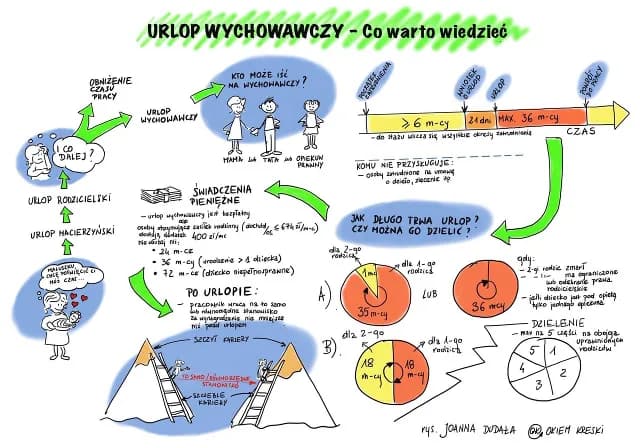 URLOP WYCHOWAWCZY - Co warto wiedzieć
OBNIŻENIE
CZASU
PRACY
URLOP
WYCHOWAWCZY
I CO
DALEJ?
URLOP RODZICIELSKI
URLOP MACIERZYŃSKI
MALUSZKU,
CHCĘ POŚWIĘCIĆ CI
MÓJ CZAS...
KTO MOŻE IŚĆ
NA WYCHOWAWCZY?
MAMA lub TATA lub OPIEKUN
PRAWNY
POCZĄTEK
ZATRUDNIENIA
WNIOSEK
O URLOP
URLOP
POWRÓT
DO PRACY
≥ 6 m-cy
21 dni
MAX. 36 m-cy
CZAS
- do stażu wlicza się wszystkie okresy zatrudnienia
KOMU NIE PRZYSŁUGUJE:
- osoby zatrudnione na umowę
o dzieło, zlecenie itp
ŚWIADCZENIA
PIENIĘŻNE
- urlop wychowawczy jest bezpłatny
ale
osoby otrzymujące zasiłek rodzinny (dochód/os. ≤ 674 zł/m-c)
dostają dodatek 400 zł/mc
Na dłużej niż:
• 24 m-ce
• 36 m-cy (urodzenie > 1 dziecka)
• 72 m-ce (dziecko niepełnosprawne)
JAK DŁUGO TRWA URLOP?
CZY MOŻNA GO DZIELIĆ?
PO URLOPIE:
- pracownik wraca na to samo
lub równorzędne stanowisko
za wynagrodzenie nie mniejsze
niż przed urlopem
SZCZYT KARIERY
TO SAMO / RÓWNORZĘDNE
STANOWISKO
SZCZEBLE
KARIERY
A)
dla 2-go
rodzica
1mc
dla 1-go
rodzica
35 m-cy
LUB
36 m-cy
gdy:
- 2-gi rodzic zmarł
ma ograniczone
lub odebrane prawa
rodzicielskie
- jeśli dziecko jest pod opieką
tylko jednego opiekuna
B)
dla 2-go
rodzica
18
m-cy
18
m-cy
dla 1-go
rodzica
DZIELENIE
- max na 5 części na obojga
uprawnionych
rodziców
5 1
4 2
3
rys. JOANNA DUDAŁA OK, OKIEM KRESKI